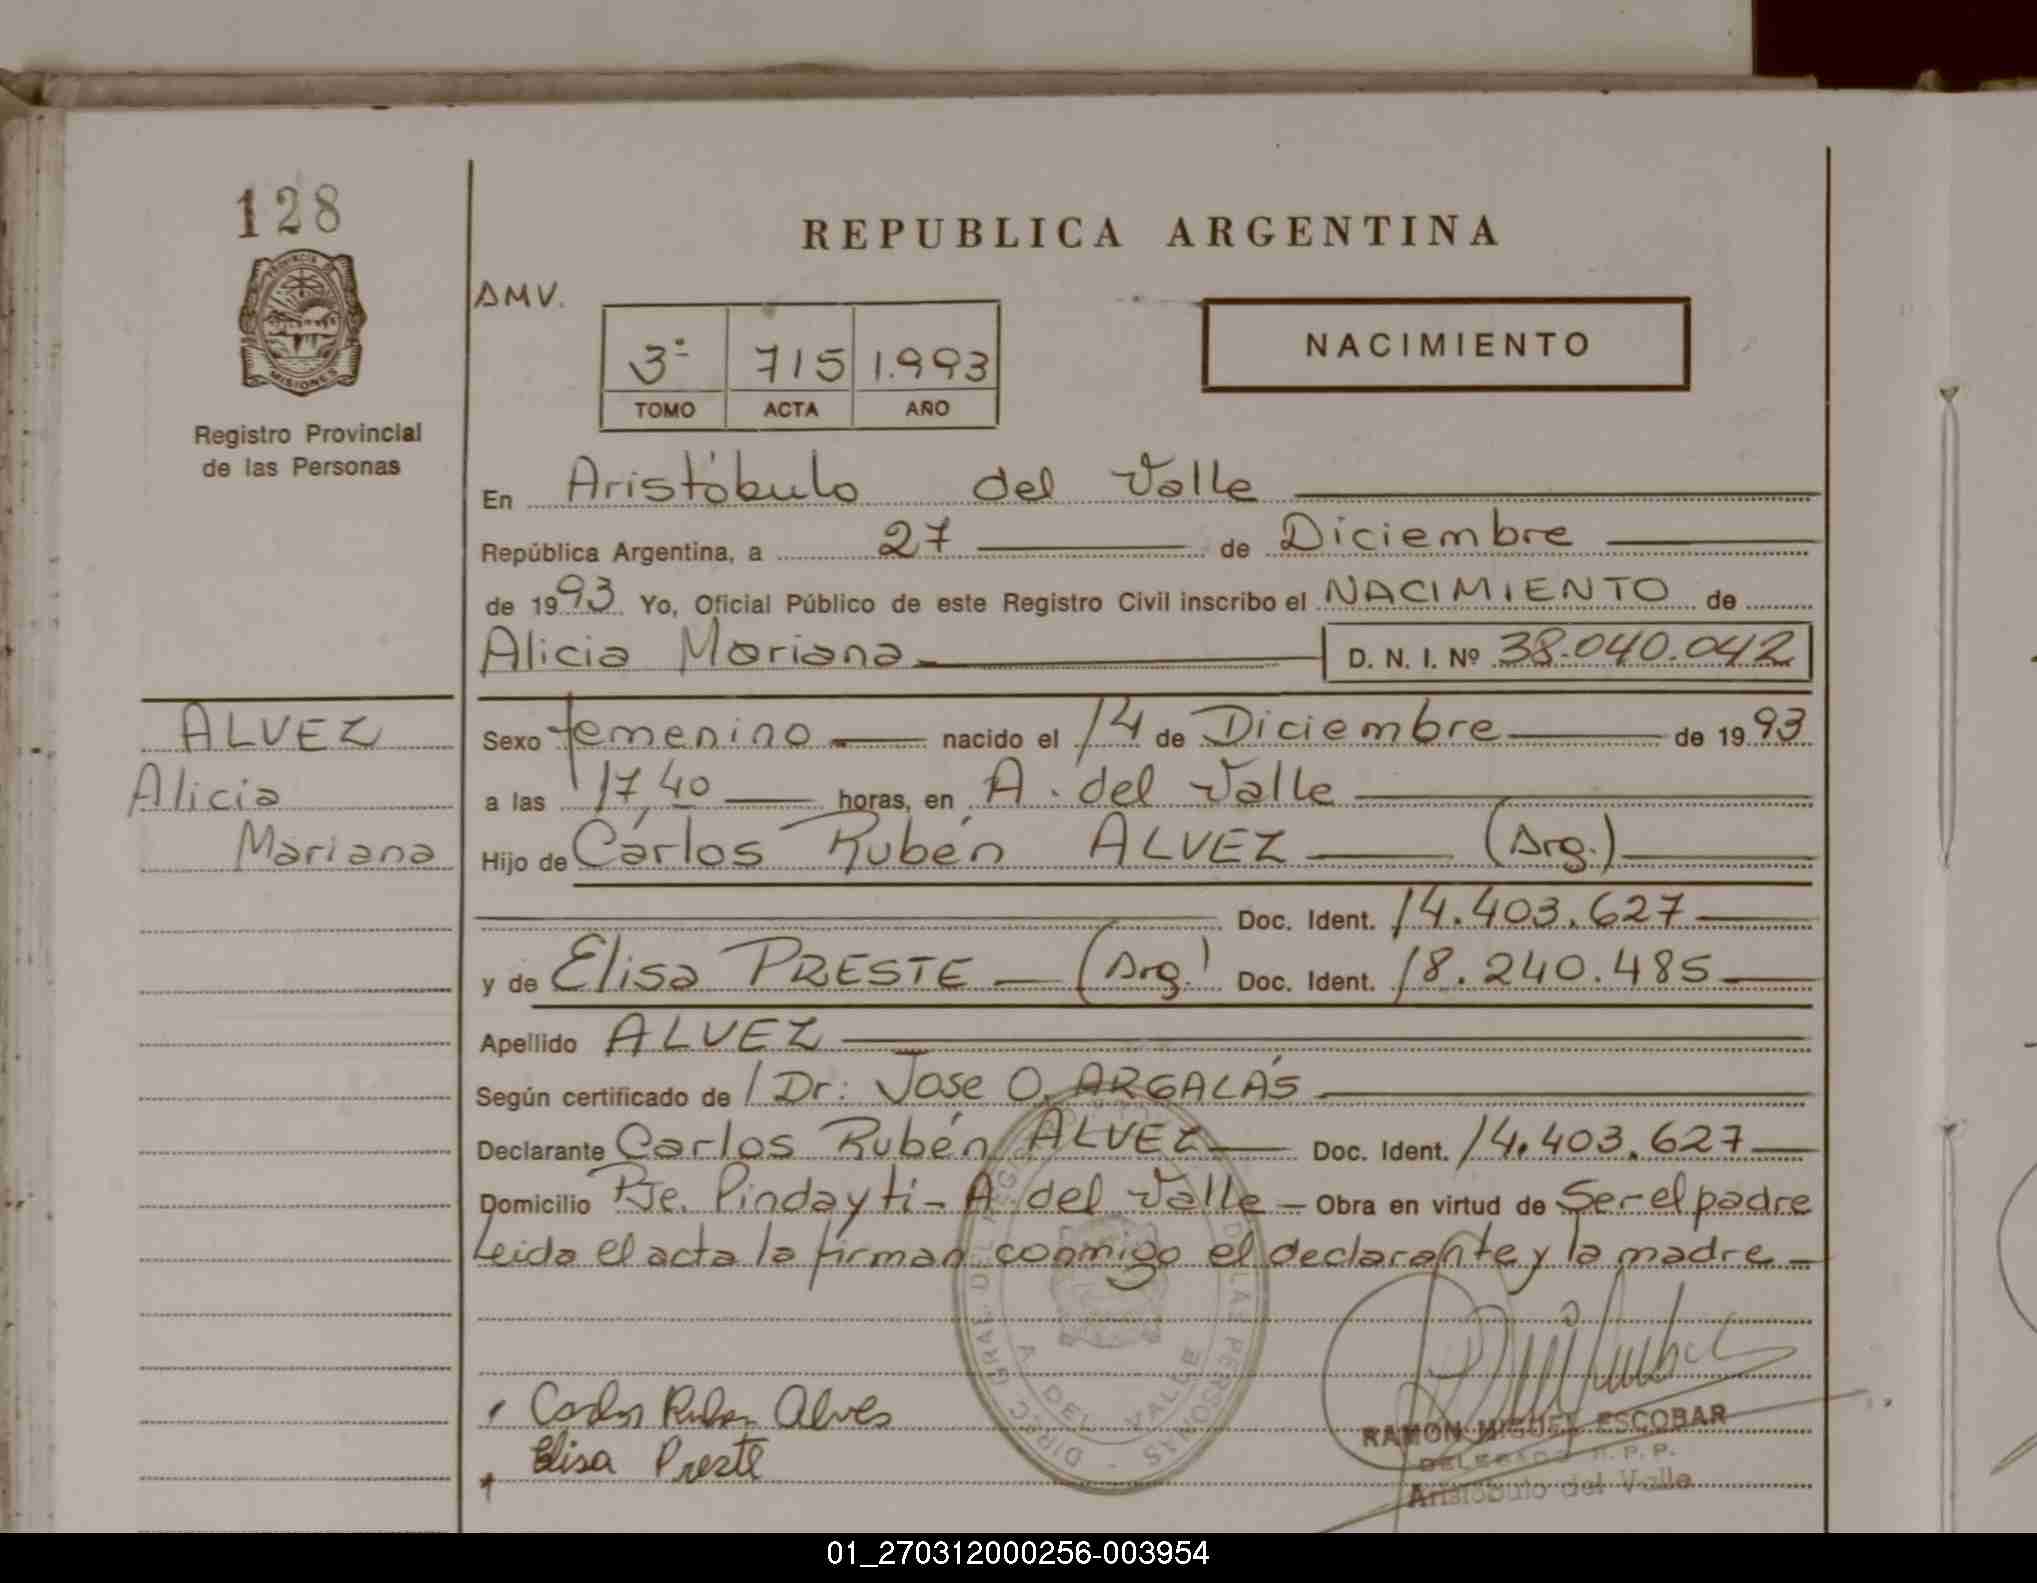 128
PROVINCIA DE
MISIONES
Registro Provincial
de las Personas
REPUBLICA ARGENTINA
AMV.
3º 715 1.993
TOMO ACTA AÑO
NACIMIENTO
En Aristóbulo del Valle
República Argentina, a 27 de Diciembre
de 1993 Yo, Oficial Público de este Registro Civil inscribo el NACIMIENTO de
Alicia Mariana D. N. I. Nº 38.040.042
ALVEZ
Alicia
Mariana
Sexo femenino nacido el 14 de Diciembre de 1993
a las 17,40 horas, en A. del Valle
Hijo de Carlos Rubén ALVEZ (Arg.)
Doc. Ident. 14.403.627
y de Elisa PRESTE (Arg.) Doc. Ident. 18.240.485
Apellido ALVEZ
Según certificado de Dr: Jose O. ARGALÁS
Declarante Carlos Rubén ALVEZ Doc. Ident. 14.403.627
Domicilio Pje. Pindayti - A del Valle - Obra en virtud de Ser el padre
Leida el acta la firman conmigo el declarante y la madre -
DIREC. GRAL. DEL REGISTRO DE LAS PERSONAS
A DEL VALLE
Carlos Ruben Alves
Elisa Preste
RAMON MIGUEL ESCOBAR
DELEGADO R.P.P.
Aristobulo del Valle
01_270312000256-003954